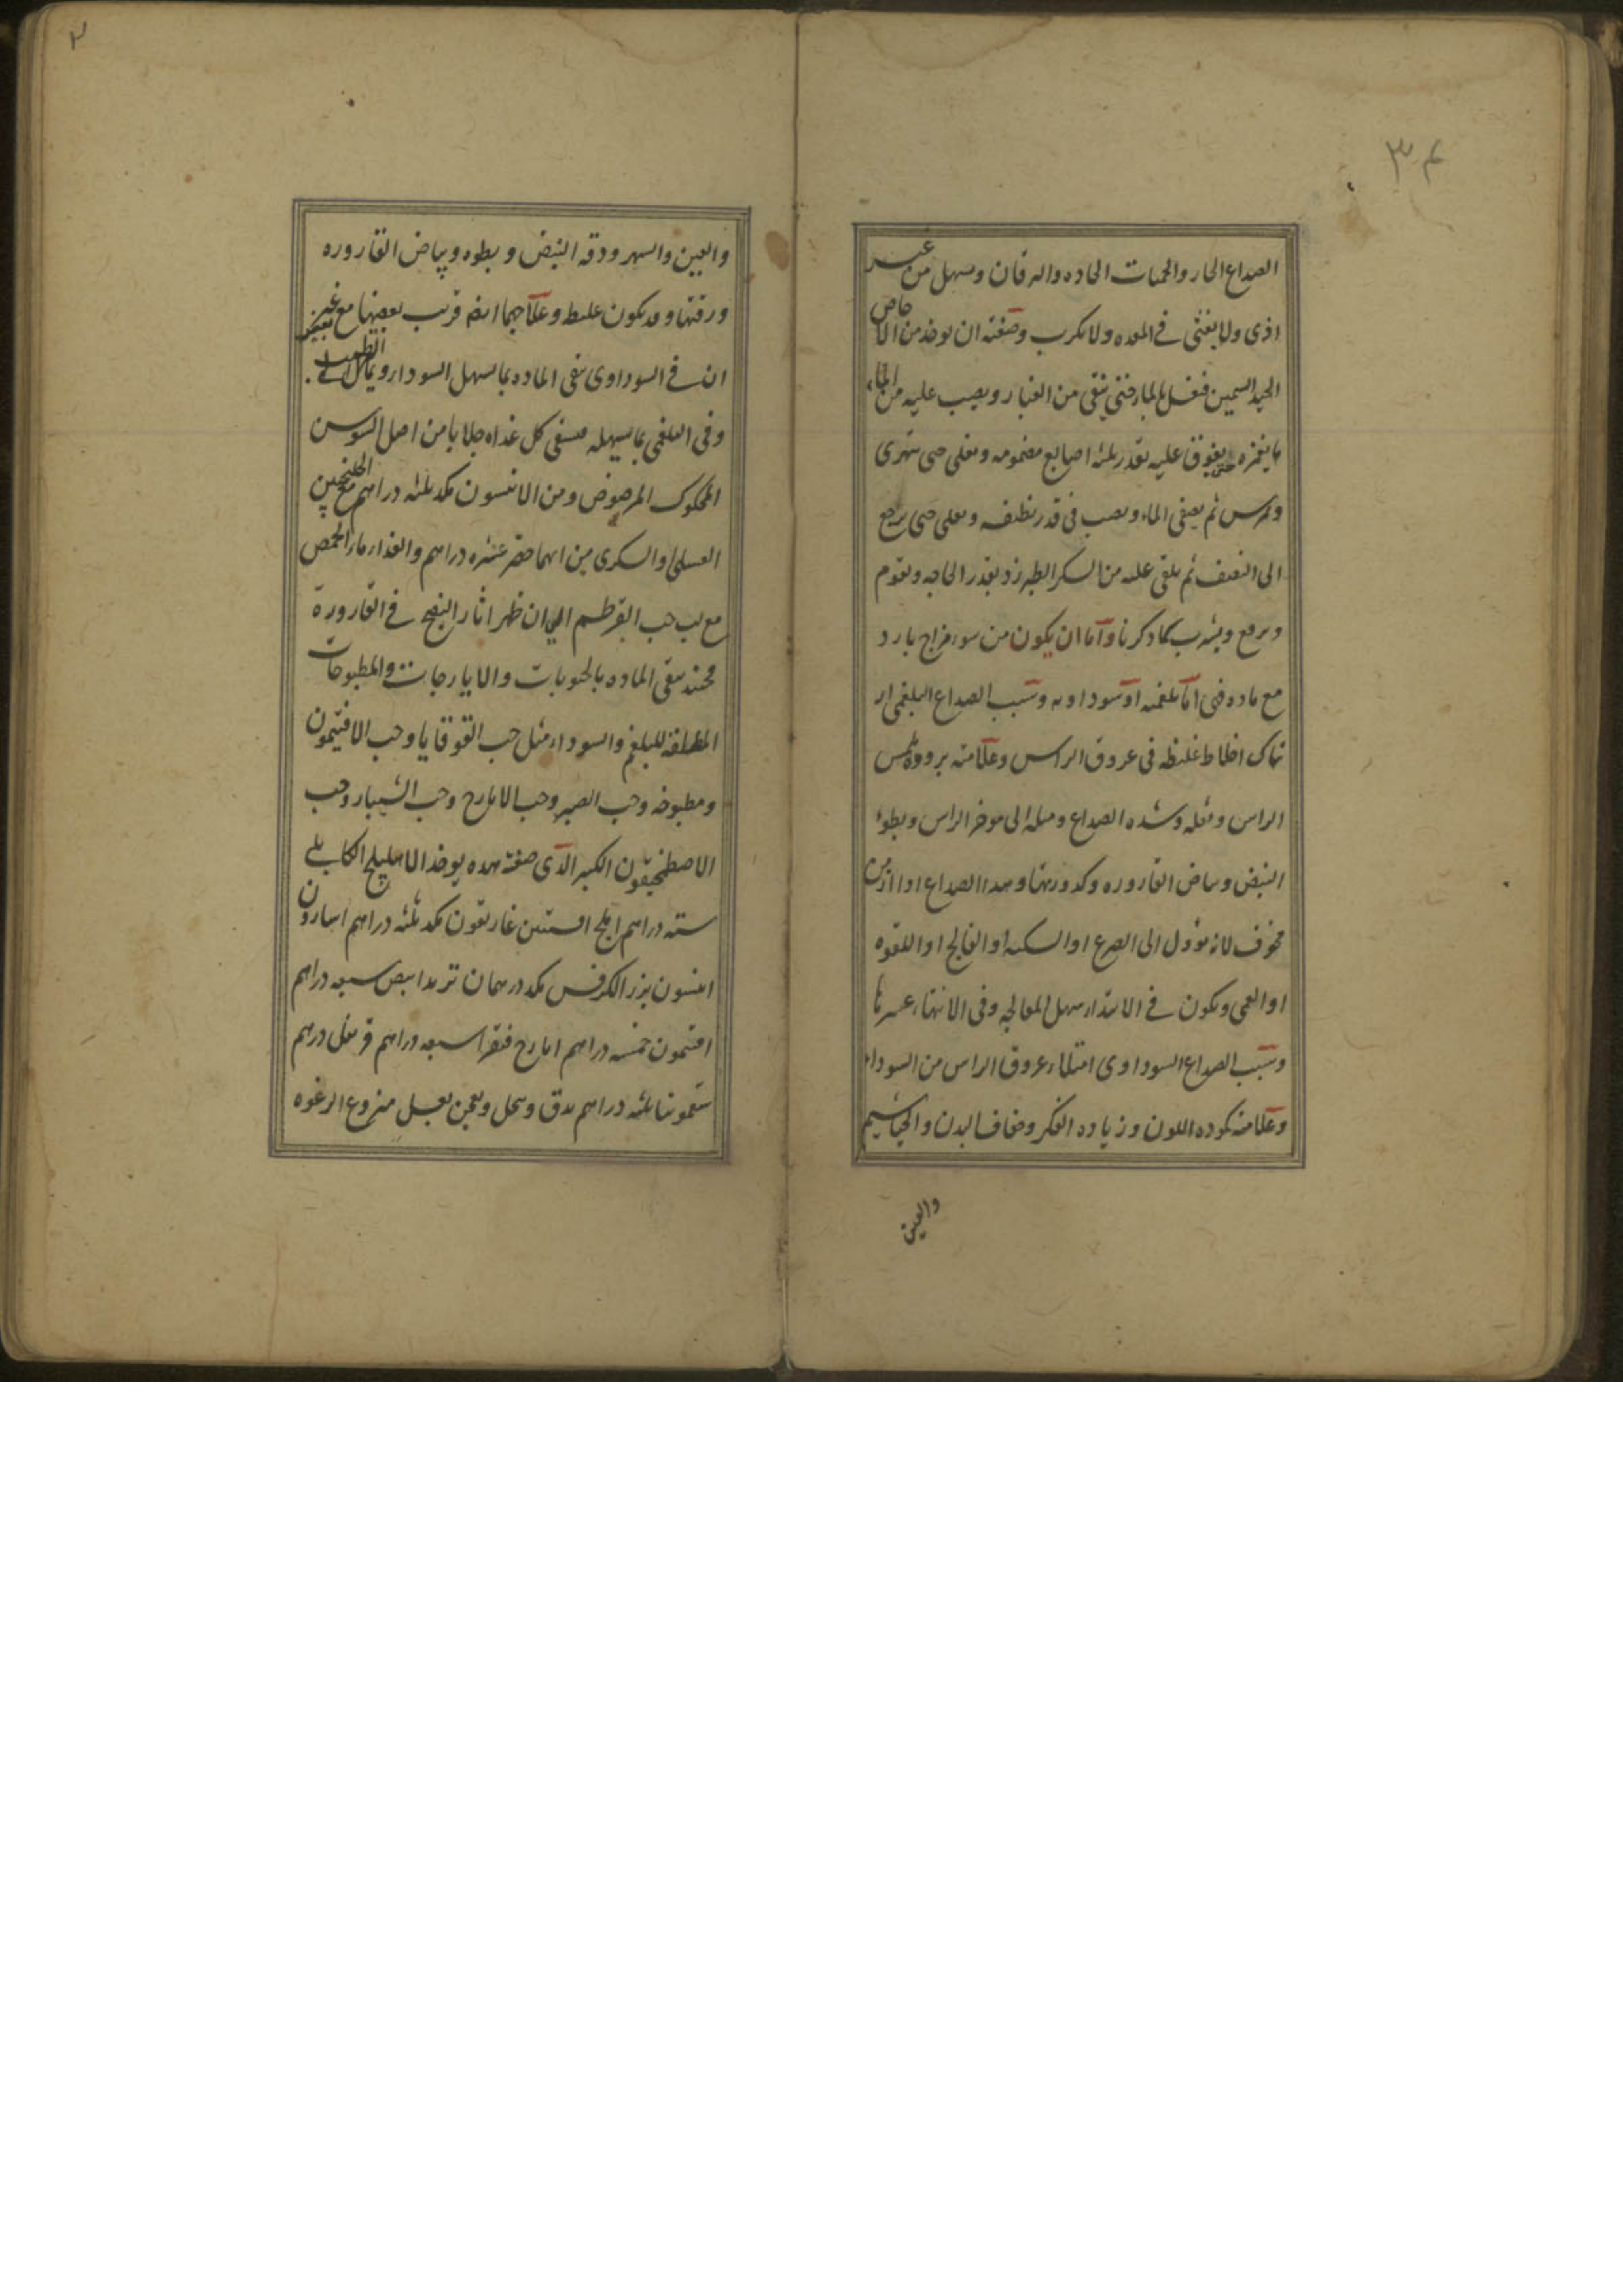 ٣٤
الصداع الحار والحميات الحاده واليرقان ويسهل من غير
اذى ولا يغثى في المعده ولا يكرب وصفته ان يوخذ من الاجاص
الجيد السمين فيغسل بالماء حتى ينقى من الغبار ويصب عليه من الماء
ما يغمره حتى يفوق عليه بقدر ثلثه اصابع مضمومه ويغلى حتى يتهرى
ويمرس ثم يصفى الماء ويصب فى قدر نظيفه ويغلى حتى يرجع
الى النصف ثم يلقى عليه من السكر الطبرزد بقدر الحاجه ويقوم
ويرفع ويشرب كما ذكرنا واما ان يكون من سوء مزاج بارد
مع ماده فهى اما بلغميه او سوداويه وسبب الصداع البلغمى ار
تباك اخلاط غليظه فى عروق الراس وعلامته برودة لمس
الراس وثقله وشده الصداع وميله الى موخر الراس وبطوء
النبض وبياض القاروره وكدورتها وهذا الصداع اذا ازمن
مخوف لانه يؤول الى الصرع او السكته او الفالج او اللقوه
او العمى ويكون في الابتداء سهل المعالجه وفى الانتهاء عسرها
وسبب الصداع السوداوى امتلاء عروق الراس من السوداء
وعلامته كموده اللون وزياده الفكر وجفاف البدن والخياشيم
والعين
والعين والسهر ودقه النبض وبطوه وبياض القاروره
ورقتها وقد يكون غليظ وعلاجهما ايضا قريب بعضها مع بعض غير
ان في السوداوى ينقى الماده بما يسهل السوداء ويمال الى الترطيب
وفى البلغمى بما يسهله فيسقى كل غداه جلابا من اصل السوس
المحكوك المرضوض ومن الانيسون مكد ثلثه دراهم مع الجلنجبين
العسلى او السكرى من ايهما حضر عشره دراهم والغذاء ماء الحمص
مع لب حب القرطم الى ان ظهر اثار النضج في القارورة
فحينئذ ينقى الماده بالحبوبات والايارجات والمطبوخات
المطلقة للبلغم والسوداء مثل حب القوقايا وحب الافتيمون
ومطبوخه وحب الصبر وحب الايارج وحب الشبيار وحب
الاصطمخيقون الكبير الذى صفته هذه يوخذ الاهليلج الكابلي
سته دراهم املج افسنتين غاريقون مكد ثلثه دراهم اسارون
انيسون بزر الكرفس مكد درهمان تربد ابيض سبعه دراهم
افتيمون خمسه دراهم ايارج فيقرا سبعه دراهم قرنفل درهم
سقمونيا ثلثه دراهم يدق وينخل ويعجن بعسل منزوع الرغوه